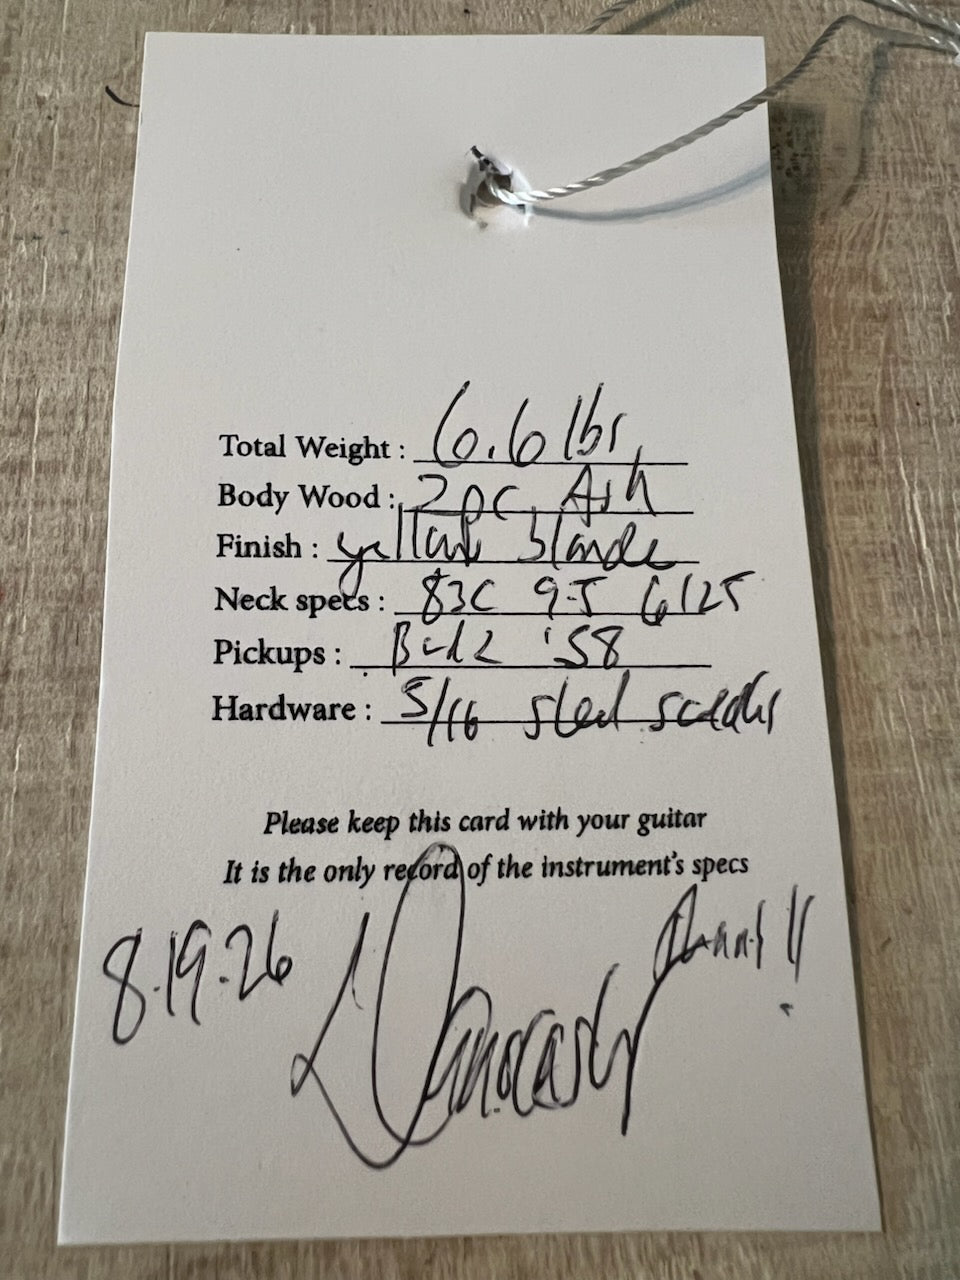 Total Weight : 6.6 lbs,
Body Wood : 2pc Ash
Finish : yellow blonde
Neck specs : 83C 9.5 6125
Pickups : '58
Hardware : 5/16 steel saddles
Please keep this card with your guitar
It is the only record of the instrument's specs
Thanks!!
8.19.26